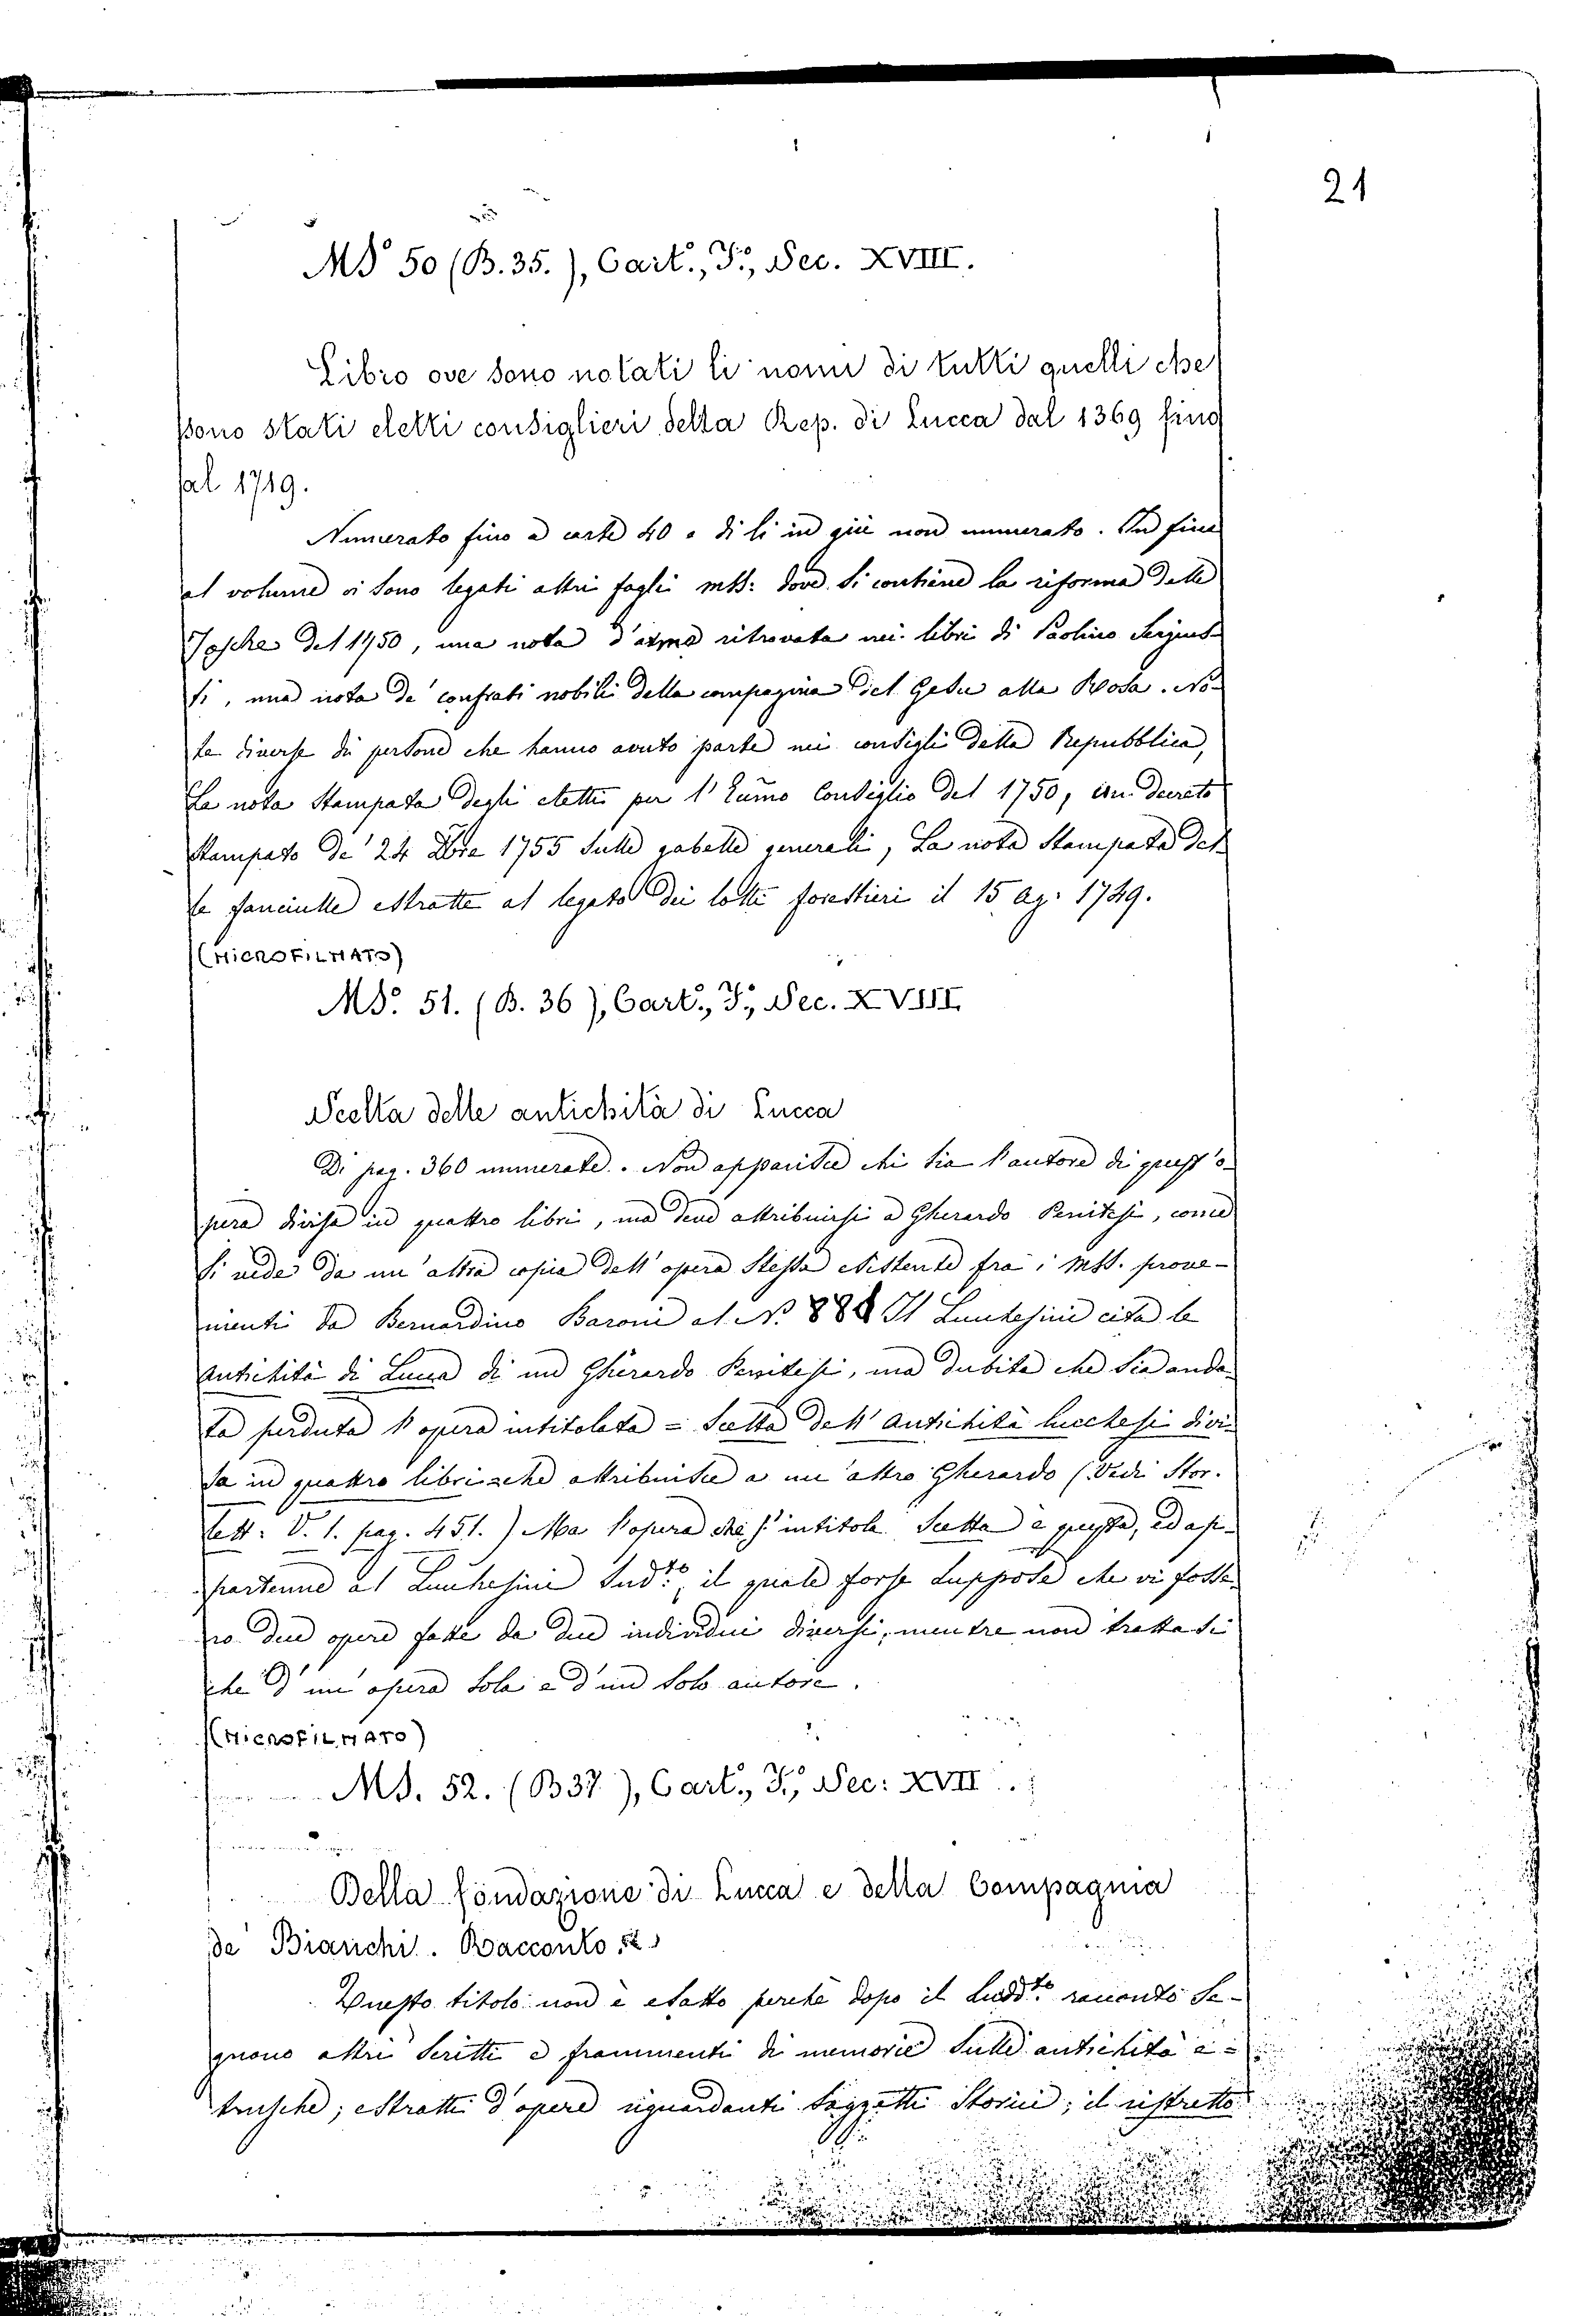 21
MS 50 (B. 35.), Cart., F.º, Sec. XVIII.
Libro ove sono notati li nomi di tutti quelli che
sono stati eletti consiglieri della Rep. di Lucca dal 1369 fino
al 1749.
Numerato fino a carte 40 e di lì in giù non numerato. In fine
al volume vi sono legati altri fogli mss: dove si contiene la riforma delle
Tasche del 1750, una nota d'arme ritrovata nei libri di Paolino
ti, una nota de' confrati nobili della compagnia del Gesu alla Rosa. No-
te diverse di persone che hanno avuto parte nei consigli della Repubblica,
La nota stampata degli eletti per l' Consiglio del 1750, un decreto
stampato de' 24 Xbre 1755 sulle gabelle generali, La nota stampata del-
le fanciulle estratte al legato dei lotti forestieri il 15 Ag: 1749.
(MICROFILMATO)
MS. 51. (B. 36), Cart., F.º, Sec. XVIII.
Scelta delle antichità di Lucca
Di pag. 360 numerate. Non apparisce chi sia l'autore di quest'o-
pera divisa in quattro libri, ma deve attribuirsi a Gherardo Penitesi, come
si vede da un'altra copia dell'opera stessa esistente fra i mss. prove-
nienti da Bernardino Baroni al Nº Il Lucchesini cita le
antichità di Lucca di un Gherardo Penitesi, ma dubita che sia anda-
ta perduta l'opera intitolata = Scelta dell'antichità lucchesi divi-
sa in quattro libri = che attribuisce a un altro Gherardo (Vedi Stor.
lett: V. 1. pag. 451.) Ma l'opera che s'intitola Scelta è questa, ed ap-
partenne al Lucchesini sudto, il quale forse suppose che vi fosse-
ro due opere fatte da due individui diversi, mentre non trattasi
che d'un'opera sola e d'un solo autore.
(MICROFILMATO)
MS. 52. (B37), Cart., F.º, Sec: XVII.
Della fondazione di Lucca e della Compagnia
de' Bianchi. Racconto &.
Questo titolo non è esatto perchè dopo il suddto racconto se-
guono altri scritti e frammenti di memorie sulle antichità e-
trusche; estratti d'opere riguardanti soggetti storici; il ristretto